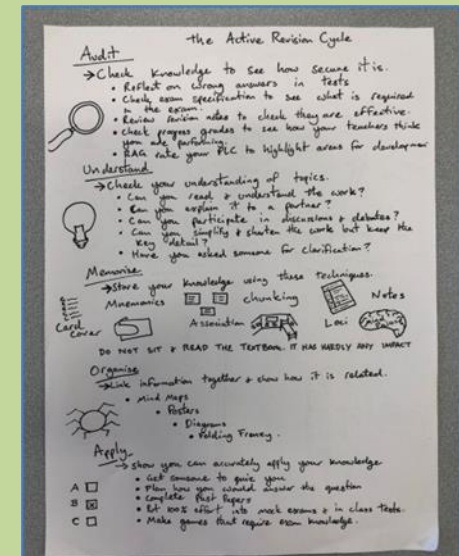 the Active Revision Cycle
Audit
→Check knowledge to see how secure it is.
• Reflect on wrong answers in tests
• Check exam specification to see what is required
in the exam.
• Review revision notes to check they are effective.
• Check progress grades to see how your teachers think
you are performing.
• RAG rate your PLC to highlight areas for development
Understand
→Check your understanding of topics.
• Can you read & understand the work?
• Can you explain it to a partner?
• Can you participate in discussions & debates?
• Can you simplify & shorten the work but keep the
key detail?
• Have you asked someone for clarification?
Memorise
→Store your knowledge using these techniques.
Mnemonics chunking Notes
Card
Cover Association Loci
DO NOT SIT & READ THE TEXTBOOK. IT HAS HARDLY ANY IMPACT
Organise
→Link information together & show how it is related.
• Mind Maps
• Posters
• Diagrams
• Folding Frenzy.
Apply
→ Show you can accurately apply your knowledge
• Get someone to quiz you
A • Plan how you would answer the question
B • Complete Past Papers
• Put 100% effort into mock exams & in class tests.
C • Make games that require exam knowledge.